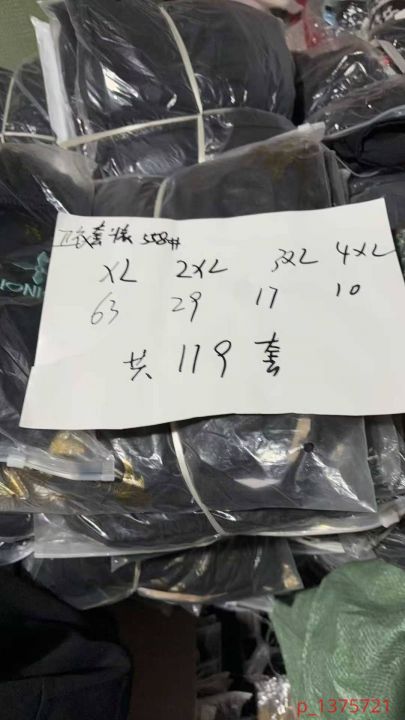 套 558#
XL 2XL 3XL 4XL
63 29 17 10
共 119 套
p_1375721